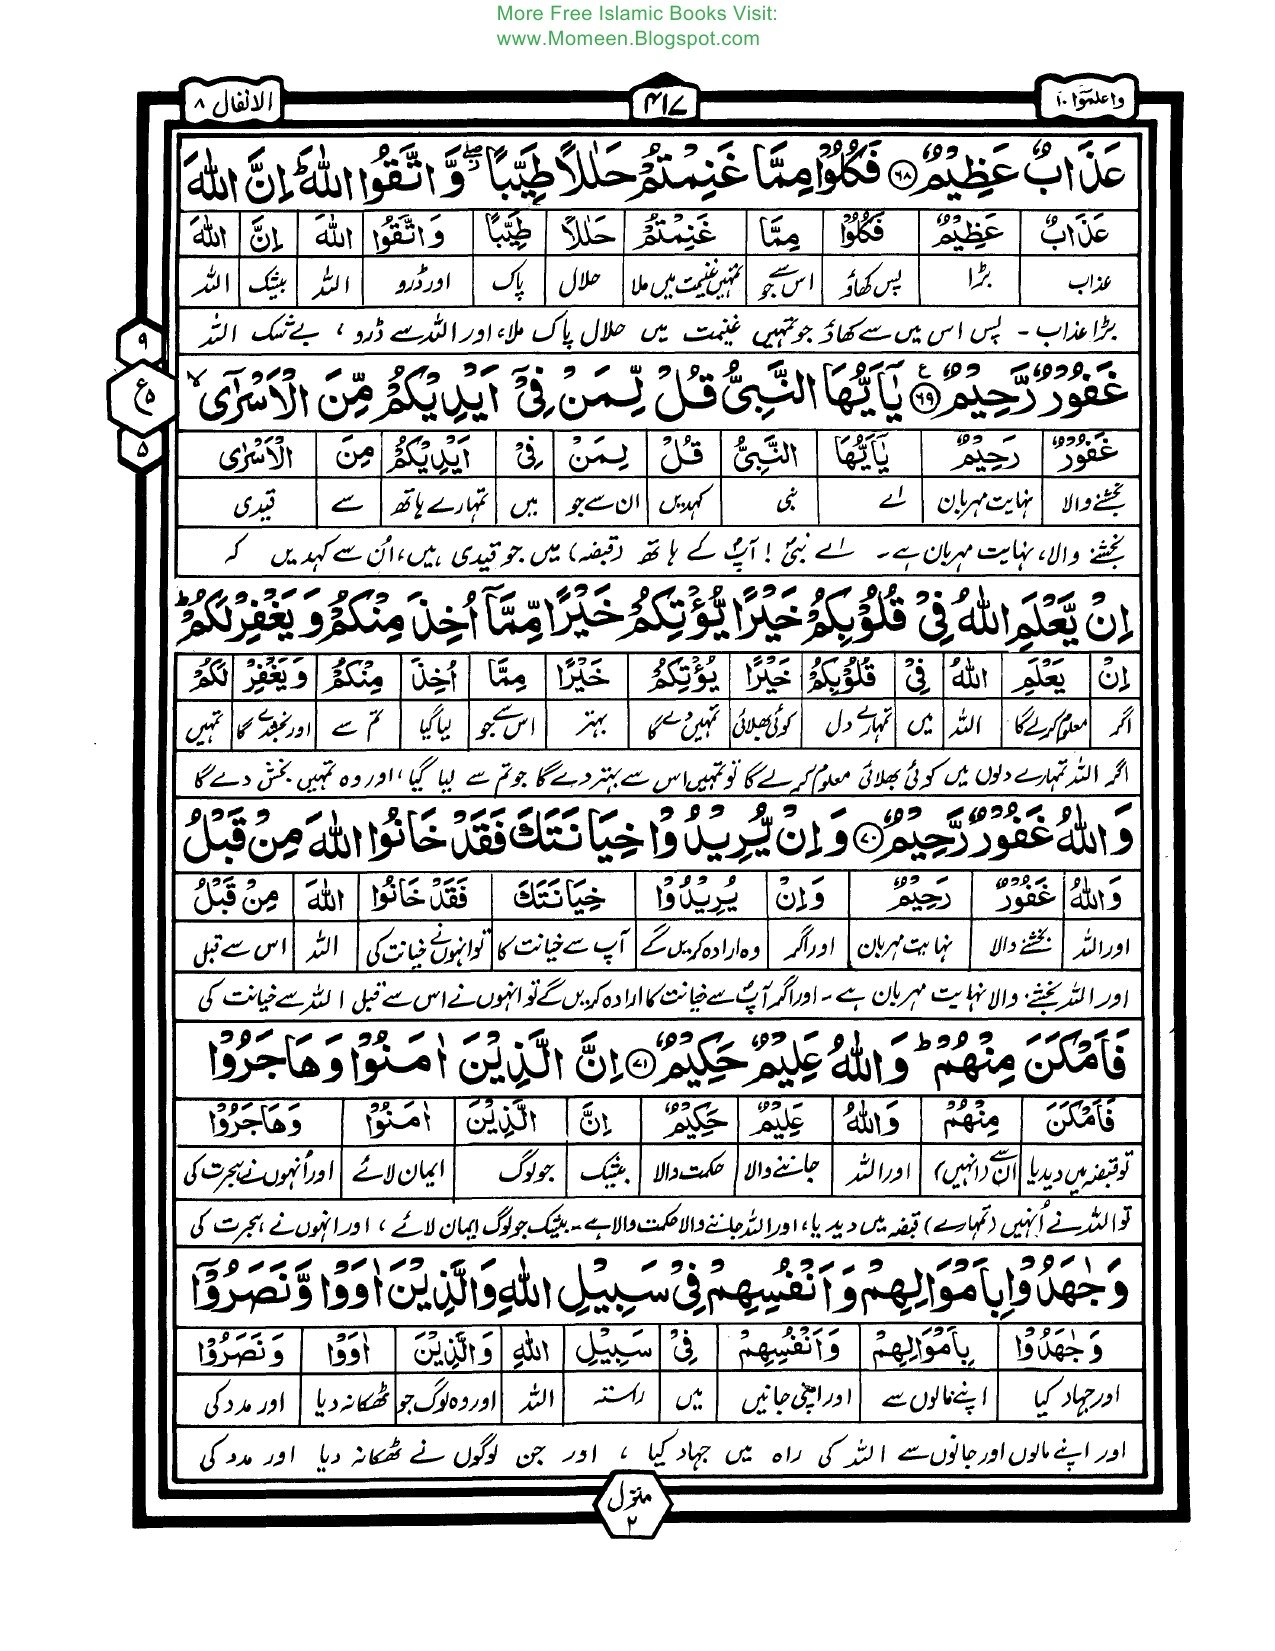 More Free Islamic Books Visit:
www.Momeen.Blogspot.com
واعلموا ١٠
٤١٧
الانفال ٨
عَذَابٌ عَظِيْمٌ ۝٦٨ فَكُلُوْا مِمَّا غَنِمْتُمْ حَلٰلًا طَيِّبًا ۖ وَّاتَّقُوا اللّٰهَ ؕ اِنَّ اللّٰهَ
عَذَابٌ عَظِيْمٌ فَكُلُوْا مِمَّا غَنِمْتُمْ حَلٰلًا طَيِّبًا وَاتَّقُوا اللّٰهَ اِنَّ اللّٰهَ
عذاب بڑا پس کھاؤ اس سے جو تمہیں غنیمت میں ملا حلال پاک اور ڈرو اللہ بیشک اللہ
بڑا عذاب - پس اس میں سے کھاؤ جو تمہیں غنیمت میں حلال پاک ملا، اور اللہ سے ڈرو ، بے شک اللہ
٩
ع ٥
٥
غَفُوْرٌ رَّحِيْمٌ ۝٦٩ يٰۤاَيُّهَا النَّبِيُّ قُلْ لِّمَنْ فِيْۤ اَيْدِيْكُمْ مِّنَ الْاَسْرٰٓى ۙ
غَفُوْرٌ رَحِيْمٌ يٰۤاَيُّهَا النَّبِيُّ قُلْ لِمَنْ فِيْ اَيْدِيْكُمْ مِنَ الْاَسْرٰى
بخشنے والا نہایت مہربان اے نبی کہدیں ان سے جو میں تمہارے ہاتھ سے قیدی
بخشنے والا، نہایت مہربان ہے - اے نبیؐ ! آپؐ کے ہاتھ (قبضہ) میں جو قیدی ہیں، اُن سے کہدیں کہ
اِنْ يَّعْلَمِ اللّٰهُ فِيْ قُلُوْبِكُمْ خَيْرًا يُّؤْتِكُمْ خَيْرًا مِّمَّاۤ اُخِذَ مِنْكُمْ وَيَغْفِرْ لَكُمْ ؕ
اِنْ يَعْلَمِ اللّٰهُ فِيْ قُلُوْبِكُمْ خَيْرًا يُؤْتِكُمْ خَيْرًا مِمَّا اُخِذَ مِنْكُمْ وَيَغْفِرْ لَكُمْ
اگر معلوم کرے گا اللہ میں تمہارے دل کوئی بھلائی تمہیں دے گا بہتر اس سے جو لیا گیا تم سے اور بخش دے گا تمہیں
اگر اللہ تمہارے دلوں میں کوئی بھلائی معلوم کرے گا تو تمہیں اس سے بہتر دے گا جو تم سے لیا گیا ، اور وہ تمہیں بخش دے گا
وَاللّٰهُ غَفُوْرٌ رَّحِيْمٌ ۝٧٠ وَاِنْ يُّرِيْدُوْا خِيَانَتَكَ فَقَدْ خَانُوا اللّٰهَ مِنْ قَبْلُ
وَاللّٰهُ غَفُوْرٌ رَحِيْمٌ وَاِنْ يُرِيْدُوْا خِيَانَتَكَ فَقَدْ خَانُوا اللّٰهَ مِنْ قَبْلُ
اور اللہ بخشنے والا نہایت مہربان اور اگر وہ ارادہ کریں گے آپ سے خیانت کا تو انہوں نے خیانت کی اللہ اس سے قبل
اور اللہ بخشنے والا نہایت مہربان ہے - اور اگر آپؐ سے خیانت کا ارادہ کریں گے تو انہوں نے اس سے قبل اللہ سے خیانت کی
فَاَمْكَنَ مِنْهُمْ ؕ وَاللّٰهُ عَلِيْمٌ حَكِيْمٌ ۝٧١ اِنَّ الَّذِيْنَ اٰمَنُوْا وَهَاجَرُوْا
فَاَمْكَنَ مِنْهُمْ وَاللّٰهُ عَلِيْمٌ حَكِيْمٌ اِنَّ الَّذِيْنَ اٰمَنُوْا وَهَاجَرُوْا
تو قبضہ میں دیدیا ان سے (انہیں) اور اللہ جاننے والا حکمت والا بیشک جو لوگ ایمان لائے اور اُنہوں نے ہجرت کی
تو اللہ نے اُنہیں (تمہارے) قبضہ میں دیدیا، اور اللہ جاننے والا حکمت والا ہے - بیشک جو لوگ ایمان لائے ، اور انہوں نے ہجرت کی
وَجٰهَدُوْا بِاَمْوَالِهِمْ وَاَنْفُسِهِمْ فِيْ سَبِيْلِ اللّٰهِ وَالَّذِيْنَ اٰوَوْا وَّنَصَرُوْۤا
وَجٰهَدُوْا بِاَمْوَالِهِمْ وَاَنْفُسِهِمْ فِيْ سَبِيْلِ اللّٰهِ وَالَّذِيْنَ اٰوَوْا وَنَصَرُوْا
اور جہاد کیا اپنے مالوں سے اور اپنی جانیں میں راستہ اللہ اور وہ لوگ جو ٹھکانہ دیا اور مدد کی
اور اپنے مالوں اور جانوں سے اللہ کی راہ میں جہاد کیا ، اور جن لوگوں نے ٹھکانہ دیا اور مدد کی
منزل ٢